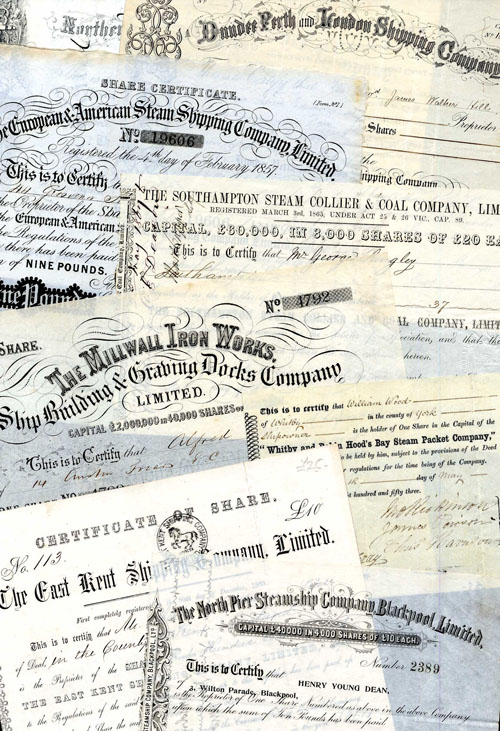 Northern
Dundee Perth and London Shipping Company
James Walker Hill
Proprietor
Shares
hipping Company
SHARE CERTIFICATE.
[Form No. 7.]
he European & American Steam Shipping Company, Limited.
No. 19606
Registered the 4th day of February 1857.
This is to Certify
the Proprietor of the Sha
the European & American
Regulations of the
there has been paid
NINE POUNDS.
THE SOUTHAMPTON STEAM COLLIER & COAL COMPANY, LIM
REGISTERED MARCH 3rd, 1863, UNDER ACT 25 & 26 VIC., CAP. 89.
CAPITAL, £60,000, IN 3,000 SHARES OF £20 EA
This is to Certify that Mr George
37
AL COMPANY, LIMIT
ociation, and that the
hereon.
No. 4792
SHARE.
THE MILLWALL IRON WORKS,
Ship Building & Graving Docks Company
LIMITED.
CAPITAL £2,000,000 in 40,000 SHARES OF
This is to Certify that Alfred
14
This is to certify that William Wood
of Whitby in the county of York
Shipowner is the holder of One Share in the Capital of the
"Whitby and Robin Hood's Bay Steam Packet Company,"
be held by him, subject to the provisions of the Deed
regulations for the time being of the Company.
day of May
ht hundred and fifty three.
CERTIFICATE OF SHARE.
£10
No. 113.
The East Kent Shi ompany, Limited.
First completely registered
This is to certify that Mr
of Deal, in the County
is the Proprietor of the
THE EAST KENT SH
to the Regulations of the
The North Pier Steamship Company, Blackpool, Limited.
CAPITAL £40000 IN 4,000 SHARES OF £10 EACH.
STEAMSHIP COMPANY, BLACKPOOL, LTD
Number 2389
This is to Certify that
HENRY YOUNG DEAN,
3, Wilton Parade, Blackpool,
is the Proprietor of One Share Numbered as above in the above Company
upon which the sum of Ten Pounds has been paid